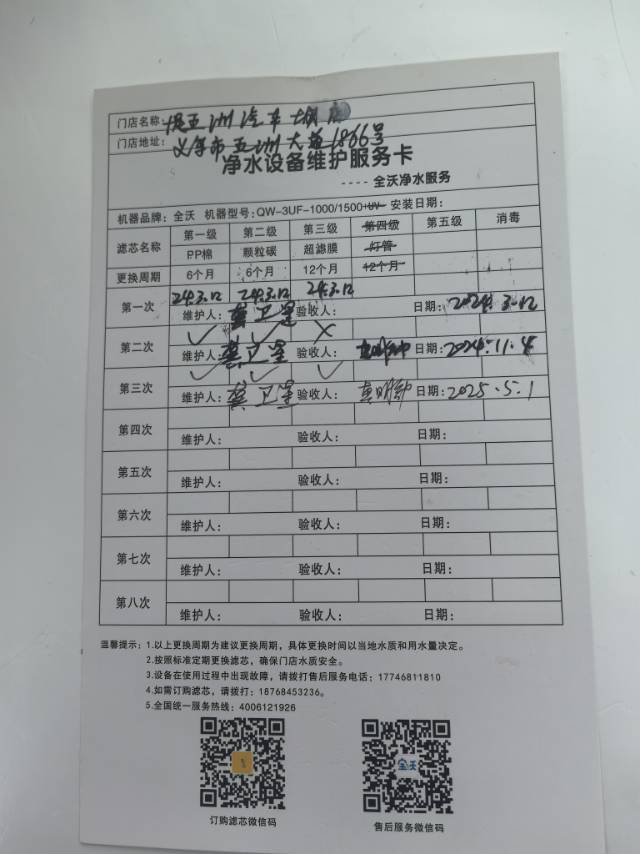 门店名称: 五洲汽车城店
门店地址: 义乌市五洲大道1866号
净水设备维护服务卡
---- 全沃净水服务
机器品牌: 全沃 机器型号: QW-3UF-1000/1500+UV 安装日期:
滤芯名称 第一级 第二级 第三级 第四级 第五级 消毒
PP棉 颗粒碳 超滤膜 灯管
更换周期 6个月 6个月 12个月 12个月
第一次 24.3.12 24.3.12 24.3.12
维护人: 龚卫星 验收人: 日期: 2024.3.12
第二次 ✓ ✓ ✗
维护人: 龚卫星 验收人: 日期: 2024.11.4
第三次 ✓ ✓ ✓
维护人: 龚卫星 验收人: 日期: 2025.5.1
第四次
维护人: 验收人: 日期:
第五次
维护人: 验收人: 日期:
第六次
维护人: 验收人: 日期:
第七次
维护人: 验收人: 日期:
第八次
维护人: 验收人: 日期:
温馨提示: 1.以上更换周期为建议更换周期，具体更换时间以当地水质和用水量决定。
2.按照标准定期更换滤芯，确保门店水质安全。
3.设备在使用过程中出现故障，请拨打售后服务电话: 17746811810
4.如需订购滤芯，请拨打: 18768453236。
5.全国统一服务热线: 4006121926
全沃
订购滤芯微信码 售后服务微信码